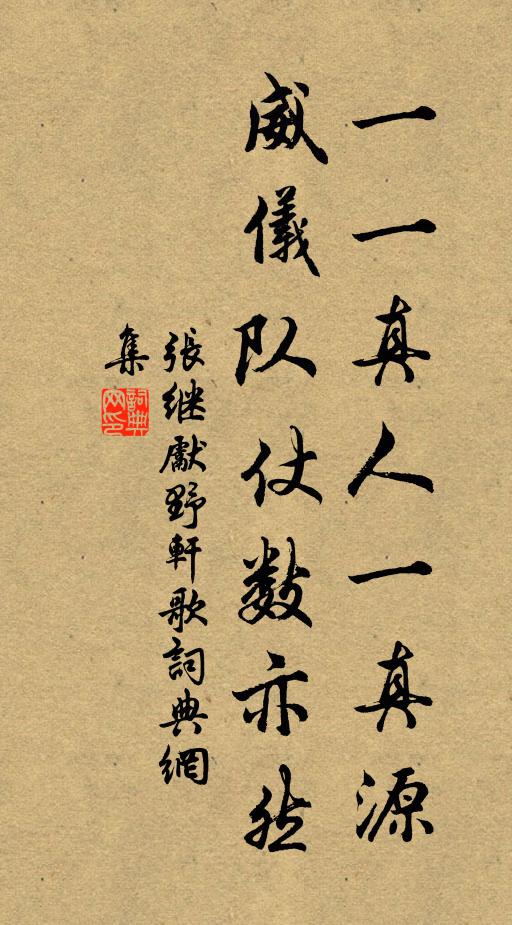 一一真人一真源
威儀队仗数亦然
張继獻野軒歌詞典網
集
詞典网印